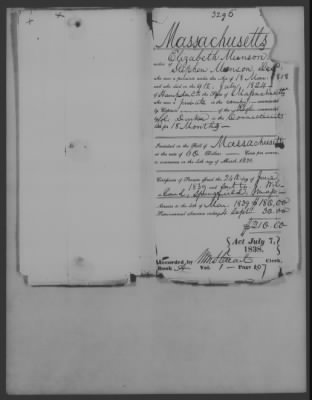 3296
Massachusetts
Elizabeth Munson
widow of
Stephen Munson Decd.
who was a pensioner under the Act of 18 Mar 1818
and who died on the 9th July 1824
of Hampden Co the State of Massachusetts
who was a private in the company commanded
by Captain of the Regt commanded
by Col. in the Connecticut
line for 18 Months
Inscribed on the Roll of Massachusetts
at the rate of 60 Dollars Cents per annum,
to commence on the 4th day of March, 1838.
Certificate of Pension issued the 26th day of June
1839 and sent to
Springfield
Arrears to the 4th of Mar 1839 $180.00
Semi-annual allowance ending 4 Sept 30.00
$210.00
Act July 7,
1838.
Recorded by Wm Clerk,
Book A Vol. 1 Page 107